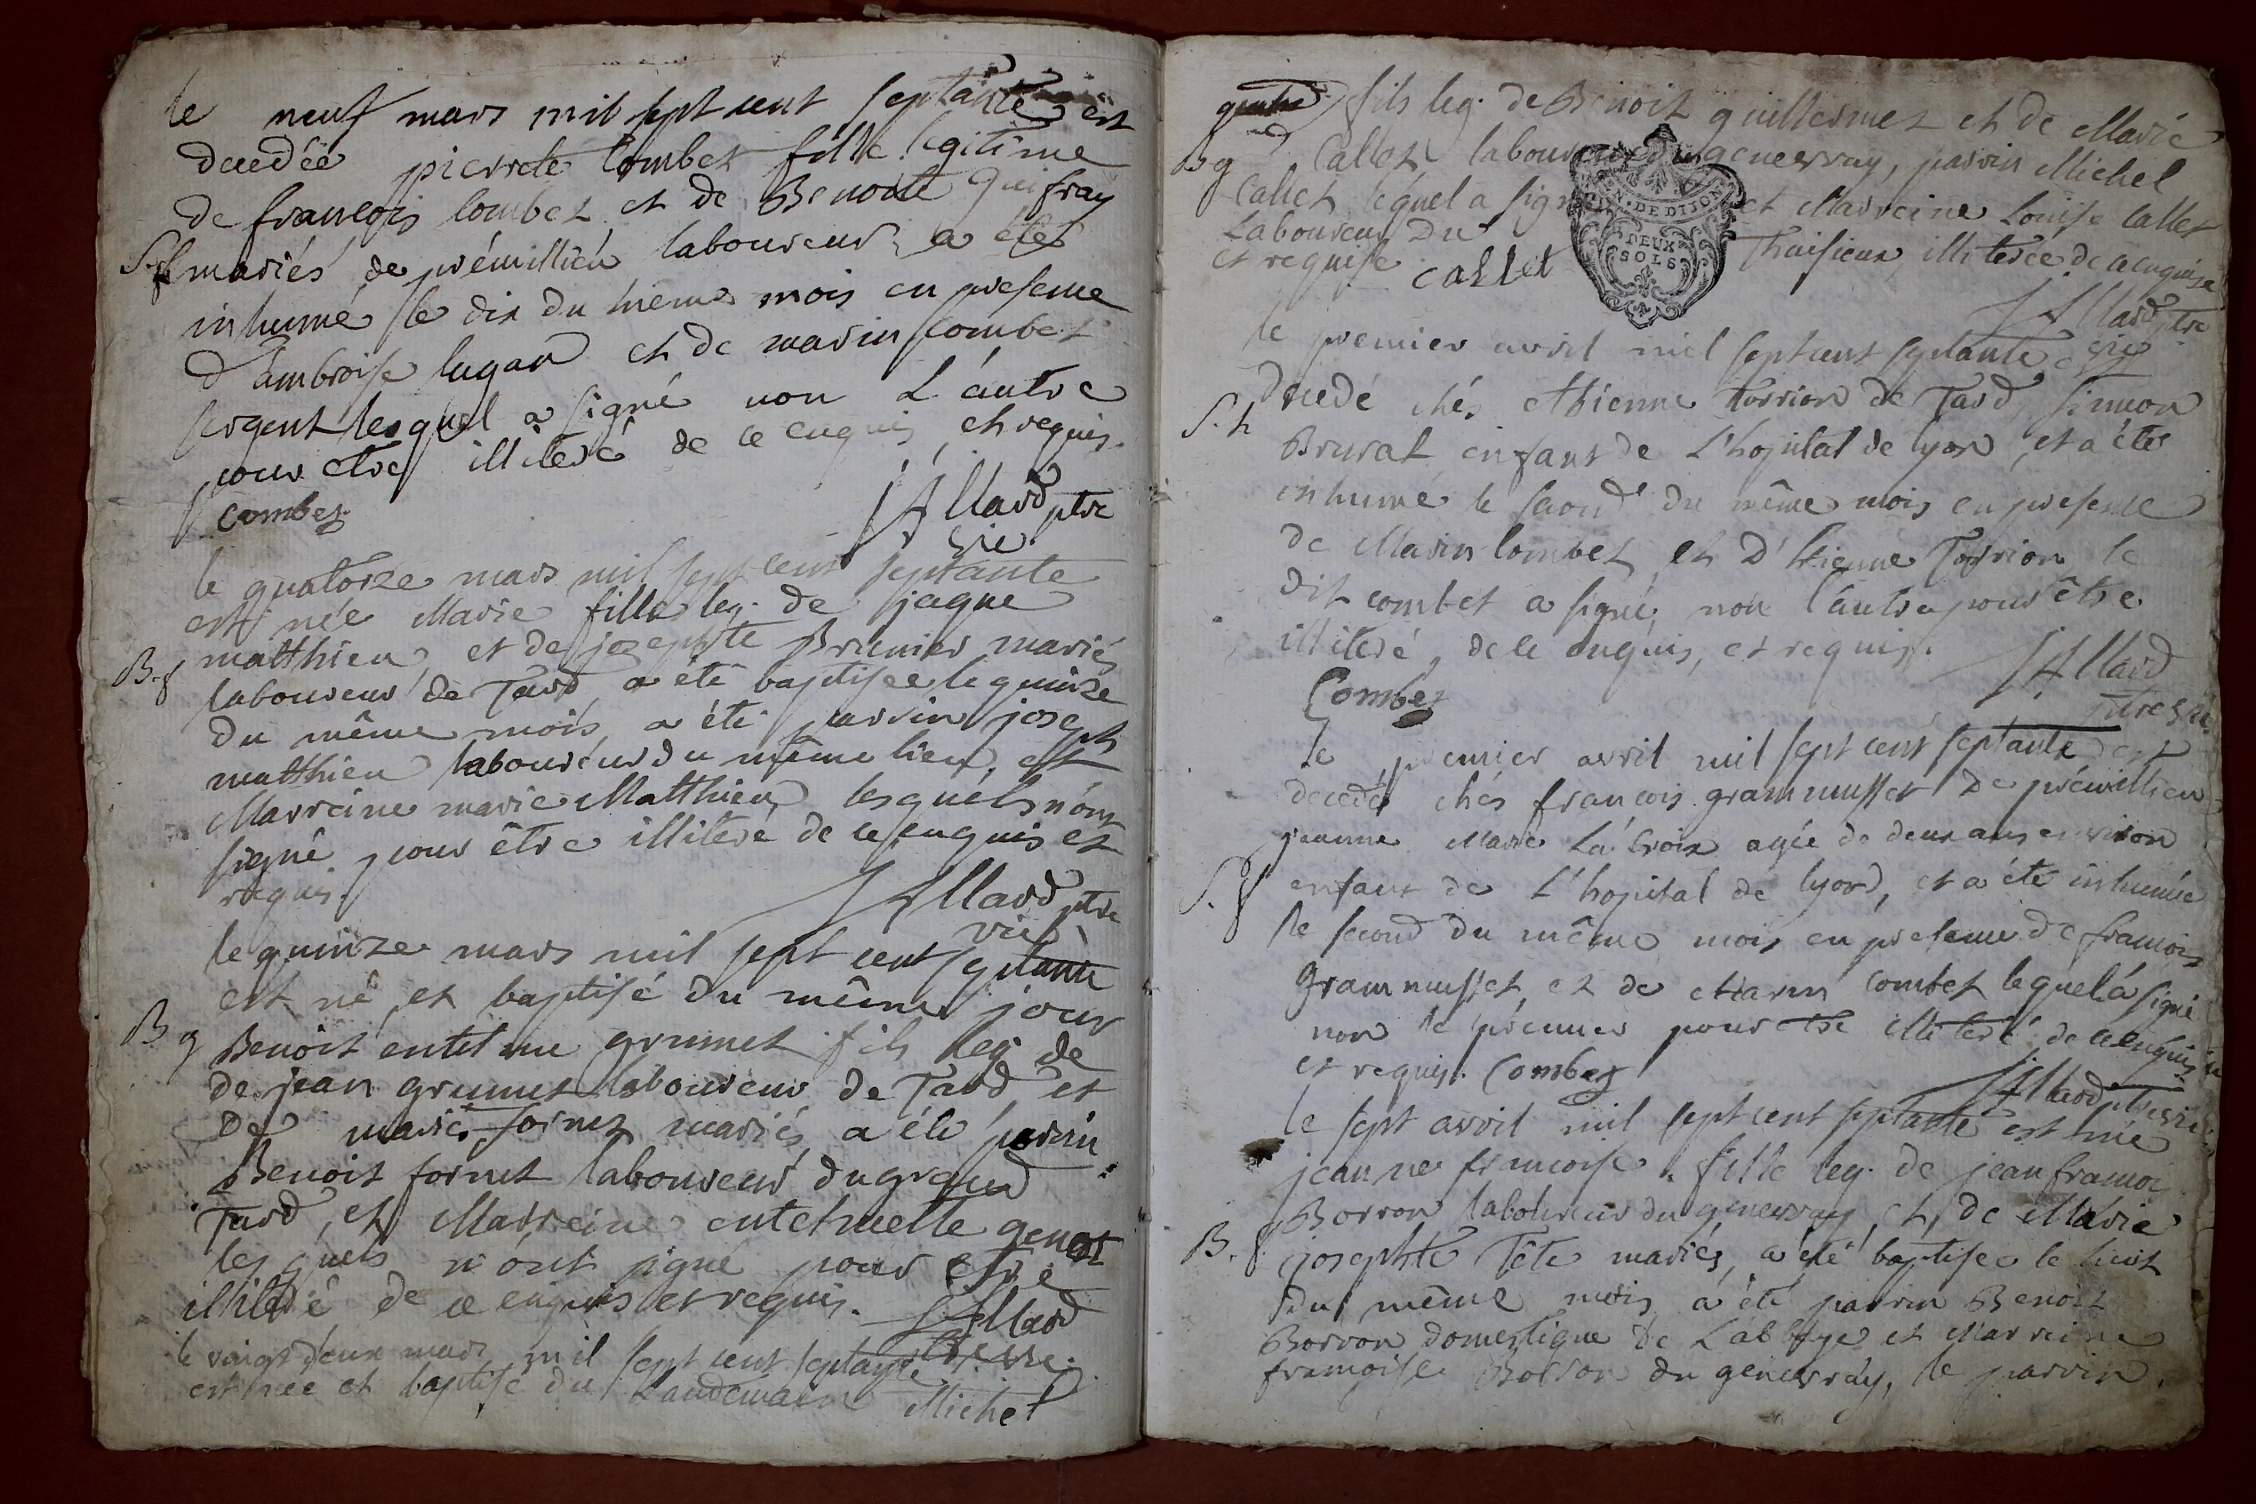 le neuf mars mil sept cent septante est
decedée pierrete Combet fille legitime
de françois Combet et de Benoite Guifray
S. f mariés de prémillieu laboureur a étée
inhumé le dix du même mois en presence
d'ambroise lugan et de marin Combet
sergent lesquel a signé non L'autre
pour etre illiteré de ce enquis et requis.
Combet JAllard ptre
vic.
le quatorze mars mil sept cent septante
est née Marie fille leg. de jaque
matthieu et de josephte Brunier mariés
B. f laboureur de Tard a été baptisée le quinze
du même mois, a été parrin joseph
matthieu laboureur du même lieu, et
Marreine marie Matthieu lesquels n'ont
signé pour être illiteré de ce enquis et
requis. JAllard ptre
vic
le quinze mars mil sept cent septante
est né et baptisé du même jour
B g Benoit entelme grumet fils leg. de
de jean grumet laboureur de Tard et
de marie fornet mariés, a été parrin
Benoit fornet laboureur du grand
Tard, et Marreine entelmette genet
lesquels n'ont signé pour etre
illiteré de ce enquis et requis. JAllard
ptre vic.
le vingt deux mars mil sept cent septante
est née et baptisé du Landemain Michel
fils leg. de Benoit guillermet et de Marie
B g Callet laboureur du genevray, parrin Michel
Callet lequel a signé et Marreine Louise Callet
Laboureur Du Thaisieux illiterée de ce enquise
et requise callet
DE DIJON
DEUX
SOLS
JAllard ptre
vic
le premier avril mil sept cent septante est
S. h decedé chés etienne Torrion de Tard Simeon
Brurat enfant de L'hopital de lyon, et a été
inhumé le second du même mois en presence
de Marin Combet et D'Etienne Torrion le
dit combet a signé, non l'autre pour être
illiteré, de ce enquis, et requis. JAllard
Combet ptre vic
le premier avril mil sept cent septante est
decedée chés françois grammusset de prémillieu
jeanne Marie Lacroix agée de deux ans environ
S. f enfant de L'hopital de lyon, et a été inhumée
le second du même mois en presence de francois
grammusset et de Marin combet lequel a signé
non le premier pour etre illiteré de ce enquis
et requis. Combet JAllard ptre vic
le sept avril mil sept cent septante est née
jeanne francoise fille leg. de jean francois
Borron laboureur du genevray et de Marie
B. f josephte Tête mariés, a été baptisée le huit
du même mois a été parrin Benoit
Borron domestique de L'abbaye et Marreine
françoise Borron du genevray, le parrin